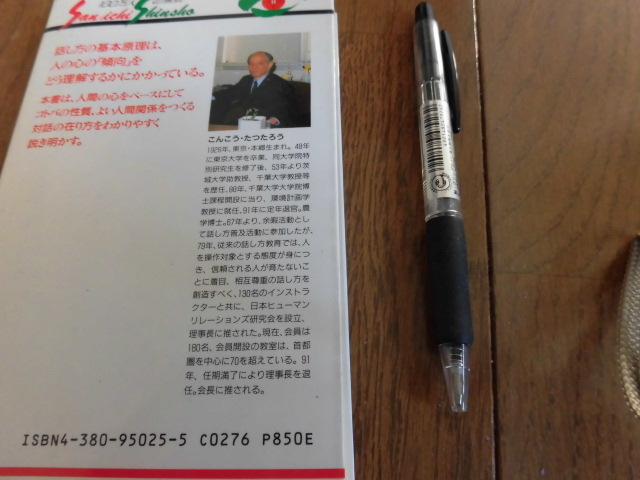 San-ichi Shinsho
話し方の基本原理は、
人の心の「傾向」を
どう理解するかにかかっている。
本書は、人間の心をベースにして
コトバの性質、よい人間関係をつくる
対話の在り方をわかりやすく
説き明かす。
こんこう・たつたろう
1926年、東京・本郷生まれ。48年
に東京大学を卒業、同大学院特
別研究生を修了後、53年より茨
城大学助教授、千葉大学教授等
を歴任。88年、千葉大学大学院博
士課程開設に当り、環境計画学
教授に就任。91年に定年退官。農
学博士。67年より、余暇活動とし
て話し方普及活動に参加したが、
79年、従来の話し方教育では、人
を操作対象とする態度が身につ
き、信頼される人が育たないこ
とに着目、相互尊重の話し方を
創造すべく、130名のインストラ
クターと共に、日本ヒューマン
リレーションズ研究会を設立、
理事長に推された。現在、会員は
180名、会員開設の教室は、首都
圏を中心に70を超えている。91
年、任期満了により理事長を退
任。会長に推される。
ISBN4-380-95025-5 C0276 P850E